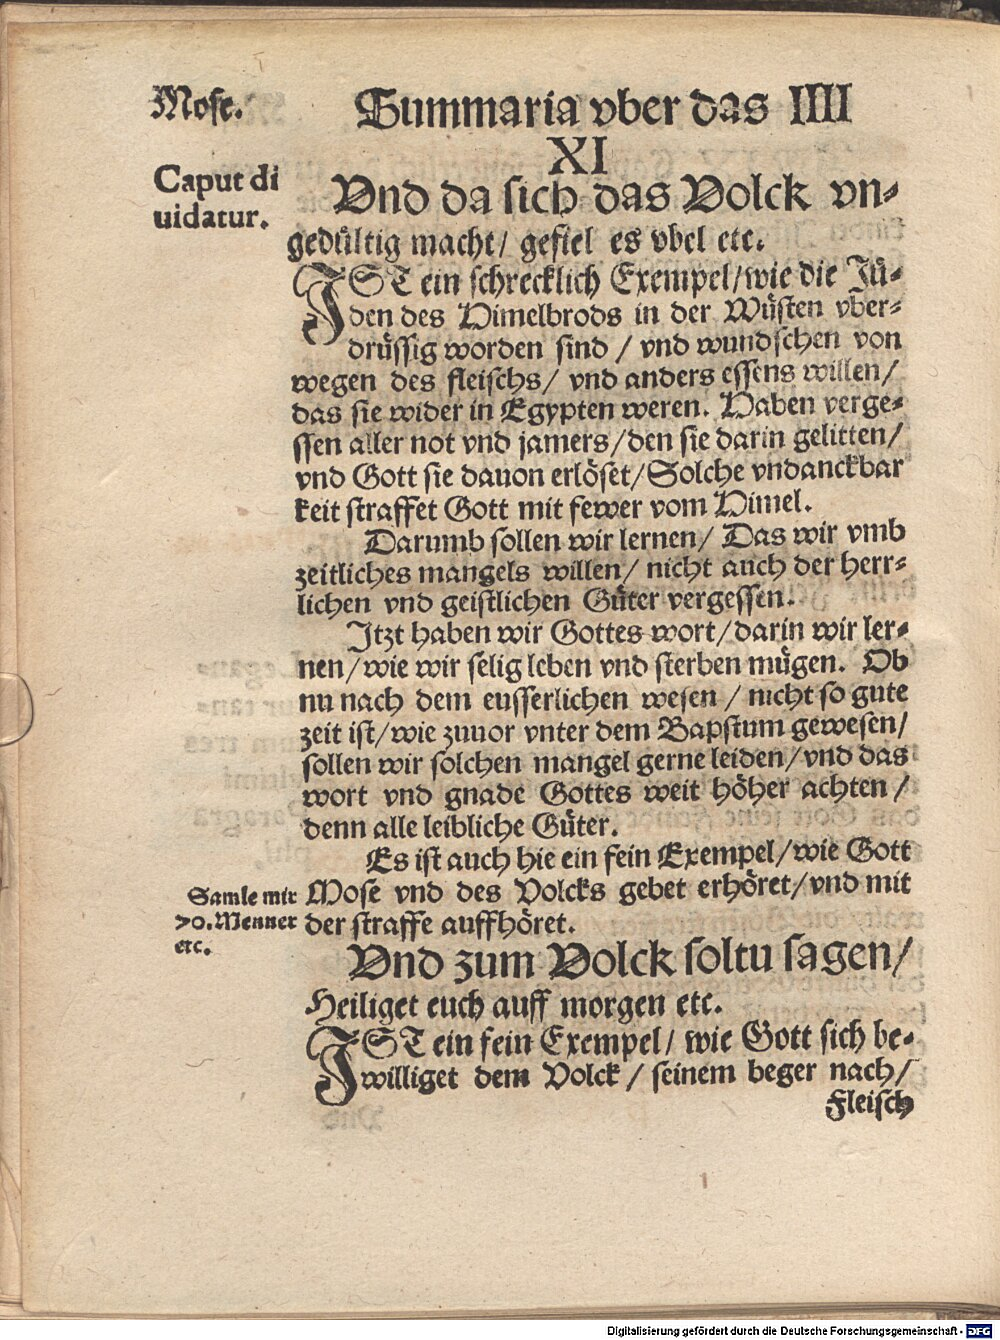 Mose. Summaria vber das IIII
XI
Caput di
uidatur.
Vnd da sich das Volck vn-
gedültig macht/ gefiel es vbel etc.
IST ein schrecklich Exempel/wie die Jü-
den des Himelbrods in der Wüsten vber-
drüssig worden sind / vnd wundschen von
wegen des fleischs/ vnd anders essens willen/
das sie wider in Egypten weren. Haben verge-
ssen aller not vnd jamers/den sie darin gelitten/
vnd Gott sie dauon erlöset/Solche vndanckbar
keit straffet Gott mit fewer vom Himel.
Darumb sollen wir lernen/ Das wir vmb
zeitliches mangels willen/ nicht auch der herr-
lichen vnd geistlichen Güter vergessen.
Itzt haben wir Gottes wort/darin wir ler-
nen/wie wir selig leben vnd sterben mügen. Ob
nu nach dem eusserlichen wesen / nicht so gute
zeit ist/wie zuuor vnter dem Bapstum gewesen/
sollen wir solchen mangel gerne leiden/vnd das
wort vnd gnade Gottes weit höher achten /
denn alle leibliche Güter.
Es ist auch hie ein fein Exempel/wie Gott
Mose vnd des Volcks gebet erhöret/vnd mit
der straffe auffhöret.
Samle mir
70. Menner
etc.
Vnd zum Volck soltu sagen/
Heiliget euch auff morgen etc.
IST ein fein Exempel/ wie Gott sich be-
williget dem Volck / seinem beger nach/
Fleisch
Digitalisierung gefördert durch die Deutsche Forschungsgemeinschaft - DFG